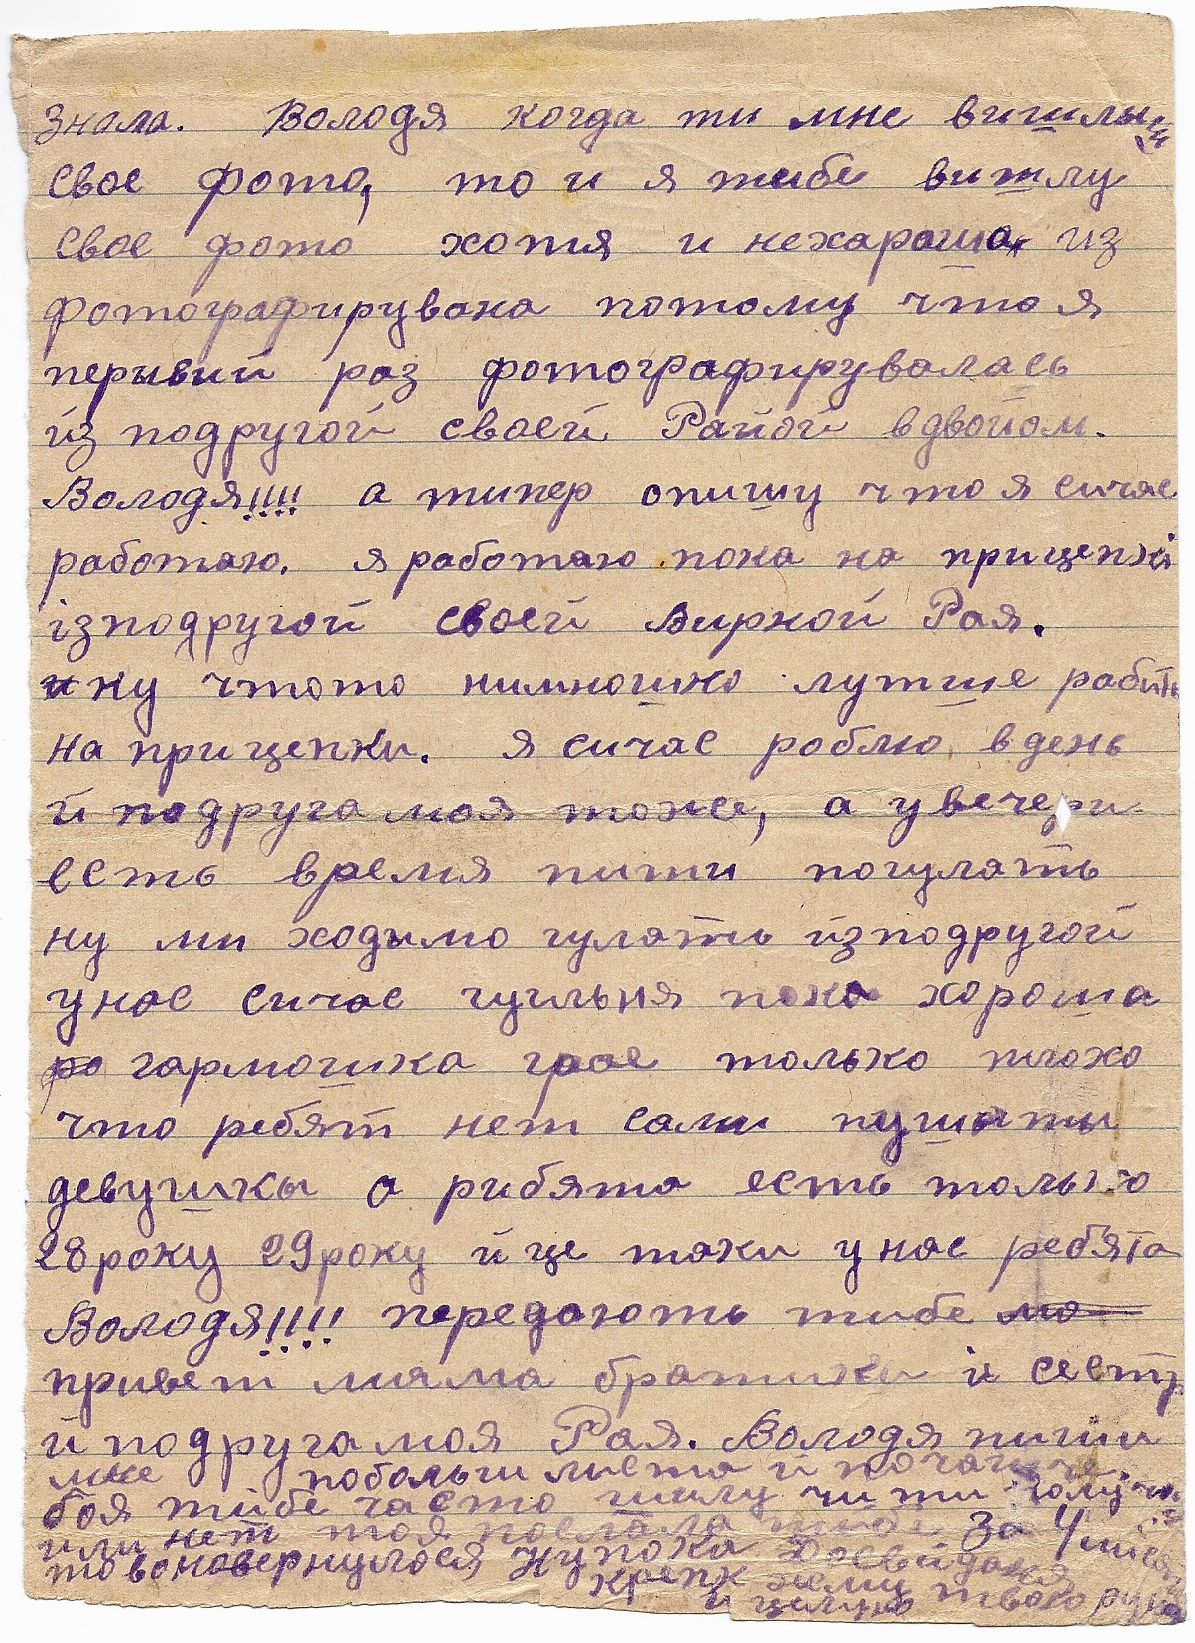 знала. Володя когда ти мне вишлыш
свое фото, то и я тибе вишлу
свое фото хотя и нехароша из
фотографирувана потому что я
перывий раз фотографирувалась
ӥз подругой своей Райой вдвойом.
Володя!!!! а типер опишу что я сичас
работаю. я работаю пока на прицепкі
ізподругой своей Виркой Рая.
ну чтото нимношко лутше рабить
на прицепки. я сичас роблю в день
й подруга моя тоже, а у вечери
есть время пити погулять
ну ми ходымо гулять йзподругой
у нас сичас гульня пока хороша
гармошка грае только плохо
что ребят нет сами
девушкы а рибята есть только
28 року 29 року й це таки у нас ребята
Володя!!!! передають тибе
привет мама братики й сестр
й подруга моя Рая. Володя пиши
мне побольши листа й
боя тибе часто шлу чи ти
или нет тоя послала за 4
тавоновернулося Ну пока Досвиданя
крепк жму твою руку
и цилую